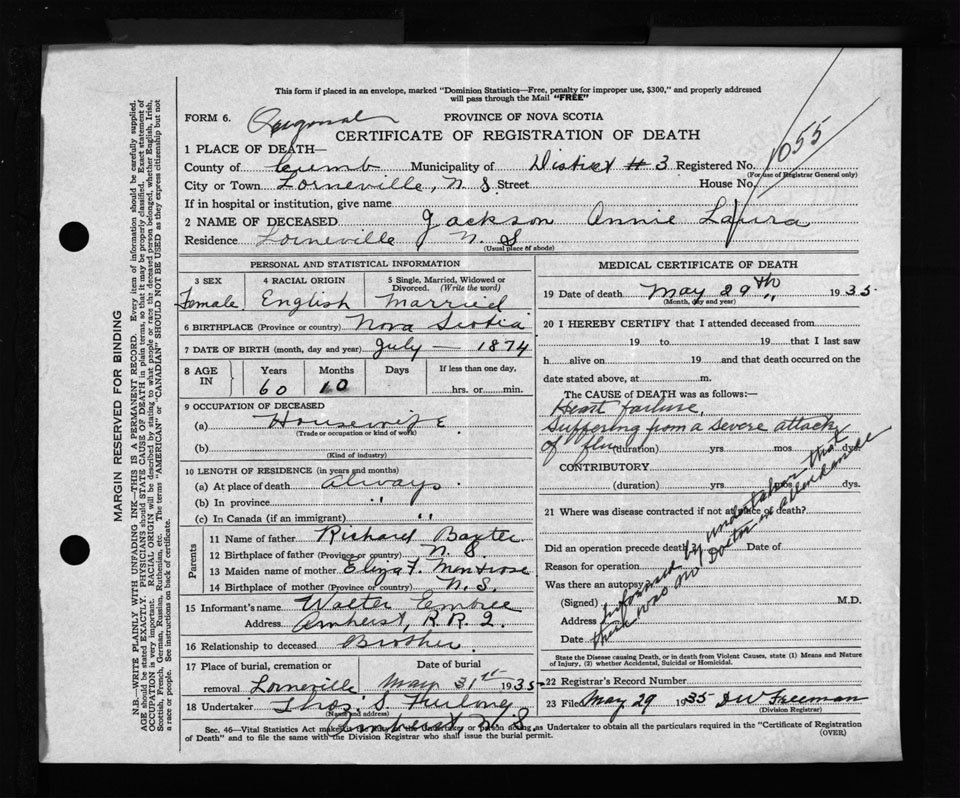 This form if placed in an envelope, marked "Dominion Statistics—Free, penalty for improper use, $300," and properly addressed
will pass through the Mail "FREE"
FORM 6.
PROVINCE OF NOVA SCOTIA
CERTIFICATE OF REGISTRATION OF DEATH
1055
1 PLACE OF DEATH—
County of Cumb Municipality of District #3 Registered No.
(For use of Registrar General only)
City or Town Lorneville, N S Street House No.
If in hospital or institution, give name
2 NAME OF DECEASED Jackson Annie Laura
Residence Lorneville N. S
(Usual place of abode)
PERSONAL AND STATISTICAL INFORMATION
3 SEX 4 RACIAL ORIGIN 5 Single, Married, Widowed or
Divorced. (Write the word)
Female English Married
6 BIRTHPLACE (Province or country) Nova Scotia
7 DATE OF BIRTH (month, day and year) July — 1874
8 AGE IN Years Months Days If less than one day,
60 10 hrs. or min.
9 OCCUPATION OF DECEASED
(a) Housewife
(Trade or occupation or kind of work)
(b)
(Kind of industry)
10 LENGTH OF RESIDENCE (in years and months)
(a) At place of death always
(b) In province "
(c) In Canada (if an immigrant) "
Parents
11 Name of father Richard Baxter
12 Birthplace of father (Province or country) N. S.
13 Maiden name of mother Eliza F. Montrose
14 Birthplace of mother (Province or country) N. S.
15 Informant's name Walter Embree
Address Amherst, R.R. 2.
16 Relationship to deceased Brother
17 Place of burial, cremation or Date of burial
removal Lorneville May 31st 1935
18 Undertaker Thos. S. Furlong
(Name and address)
Amherst N. S.
MEDICAL CERTIFICATE OF DEATH
19 Date of death May 29th 1935
(Month, day and year)
20 I HEREBY CERTIFY that I attended deceased from
19 to 19 that I last saw
h alive on 19 and that death occurred on the
date stated above, at m.
The CAUSE of DEATH was as follows:—
Heart failure,
Suffering from a severe attack
of flu (duration) yrs. mos. dys.
CONTRIBUTORY
(duration) yrs. mos. dys.
21 Where was disease contracted if not at place of death?
Did an operation precede death? Date of
Reason for operation
Was there an autopsy
(Signed) M.D.
Address
Date
Informed by undertaker that
there was no Doctor in attendance
State the Disease causing Death, or in death from Violent Causes, state (1) Means and Nature
of Injury, (2) whether Accidental, Suicidal or Homicidal.
22 Registrar's Record Number
23 Filed May 29 1935 D W Freeman
(Division Registrar)
Sec. 46—Vital Statistics Act makes it the duty of the Undertaker or person acting as Undertaker to obtain all the particulars required in the "Certificate of Registration
of Death" and to file the same with the Division Registrar who shall issue the burial permit.
(OVER)
MARGIN RESERVED FOR BINDING
N.B.—WRITE PLAINLY WITH UNFADING INK—THIS IS A PERMANENT RECORD. Every item of information should be carefully supplied.
AGE should be stated EXACTLY. PHYSICIANS should STATE CAUSE OF DEATH in plain terms, so that it may be properly classified. Exact statement of
OCCUPATION is very important. RACIAL ORIGIN will be described by stating to what people or race the deceased person belonged, whether English, Irish,
Scottish, French, German, Russian, Ruthenian, etc. The terms "AMERICAN" or "CANADIAN" SHOULD NOT BE USED as they express citizenship but not
a race or people. See instructions on back of certificate.